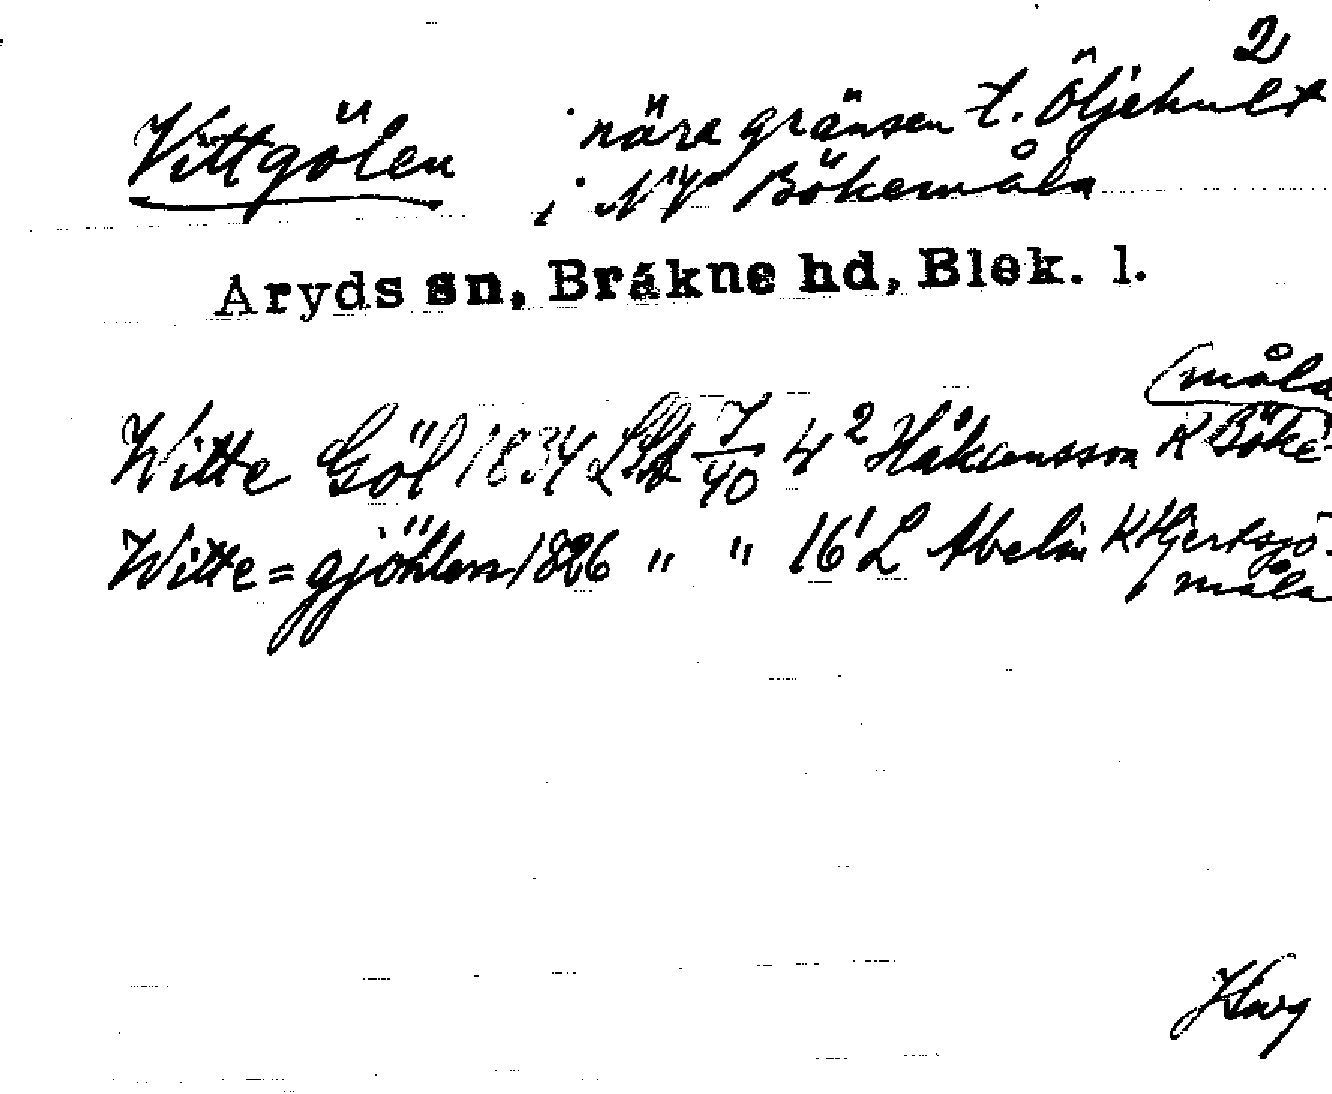 2
Vittgölen i nära gränsen t. Öljehult
i NV Bökemåla
Aryds sn, Bräkne hd, Blek. l.
(måla
Witte Göl 1834 7/40 4² Håkansson K Böke-
Witte=gjöhlen 1826 " " 16' L Abelin K Hjertsjö-
måla